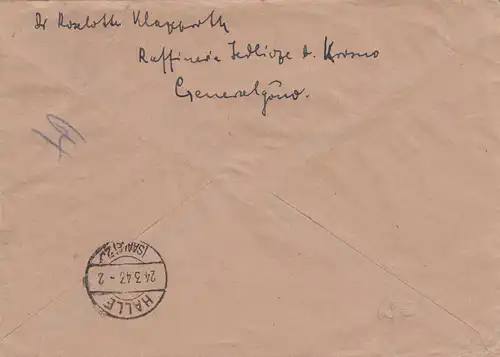 Dr Roselotte Klapproth
Raffinerie Jedlicze b. Krosno
Generalgouv.
HALLE
24.3.43.-2
(SAALE) 2